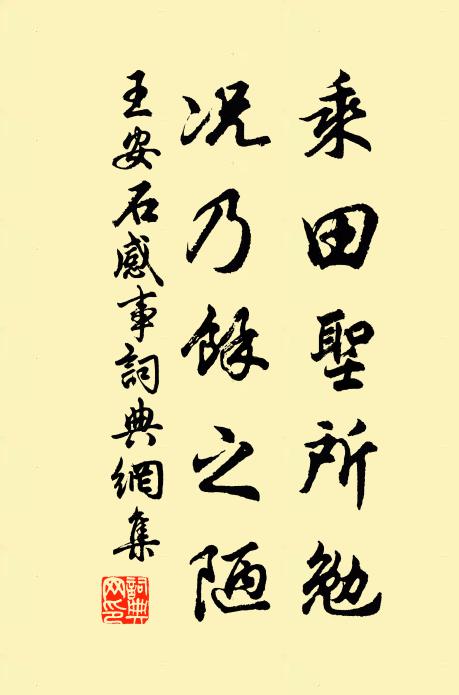 乘田聖所勉
况乃餘之陋
王安石感事詞典網集
詞典網印